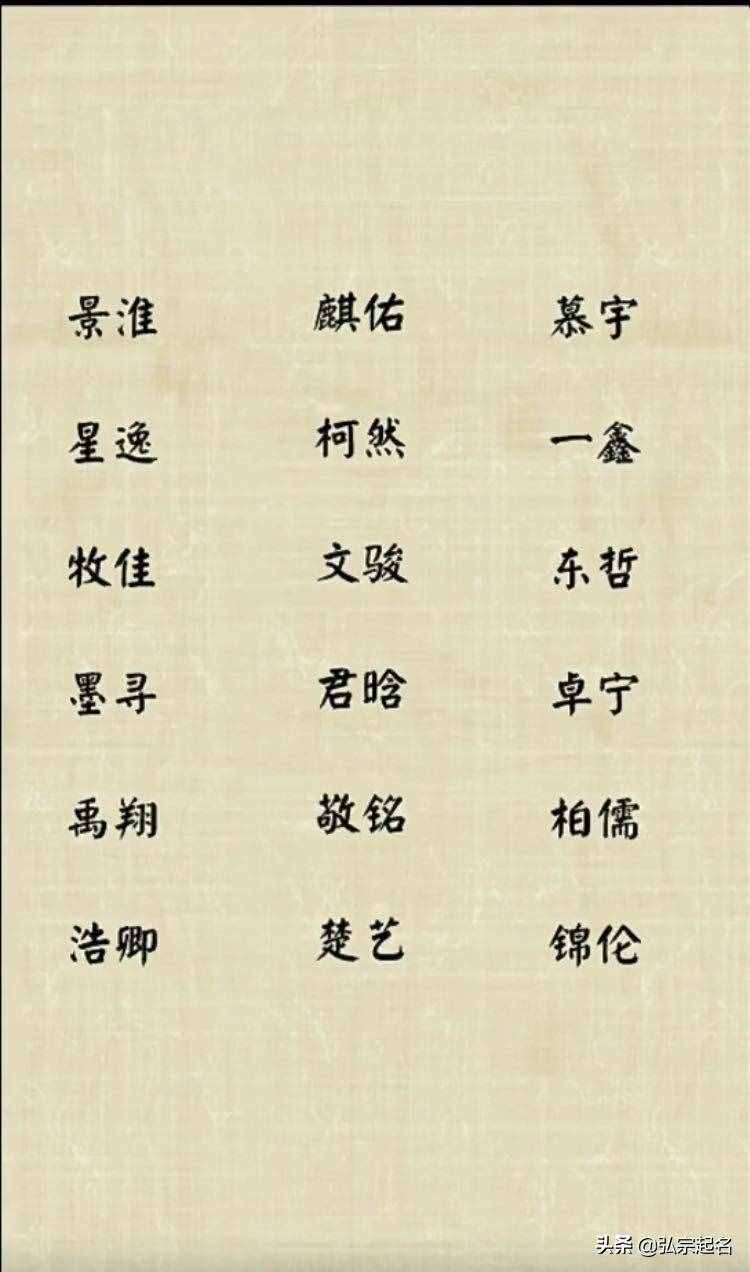 景淮 麒佑 慕宇
星逸 柯然 一鑫
牧佳 文骏 东哲
墨寻 君晗 卓宁
禹翔 敬铭 柏儒
浩卿 楚艺 锦伦
头条 @弘宗起名